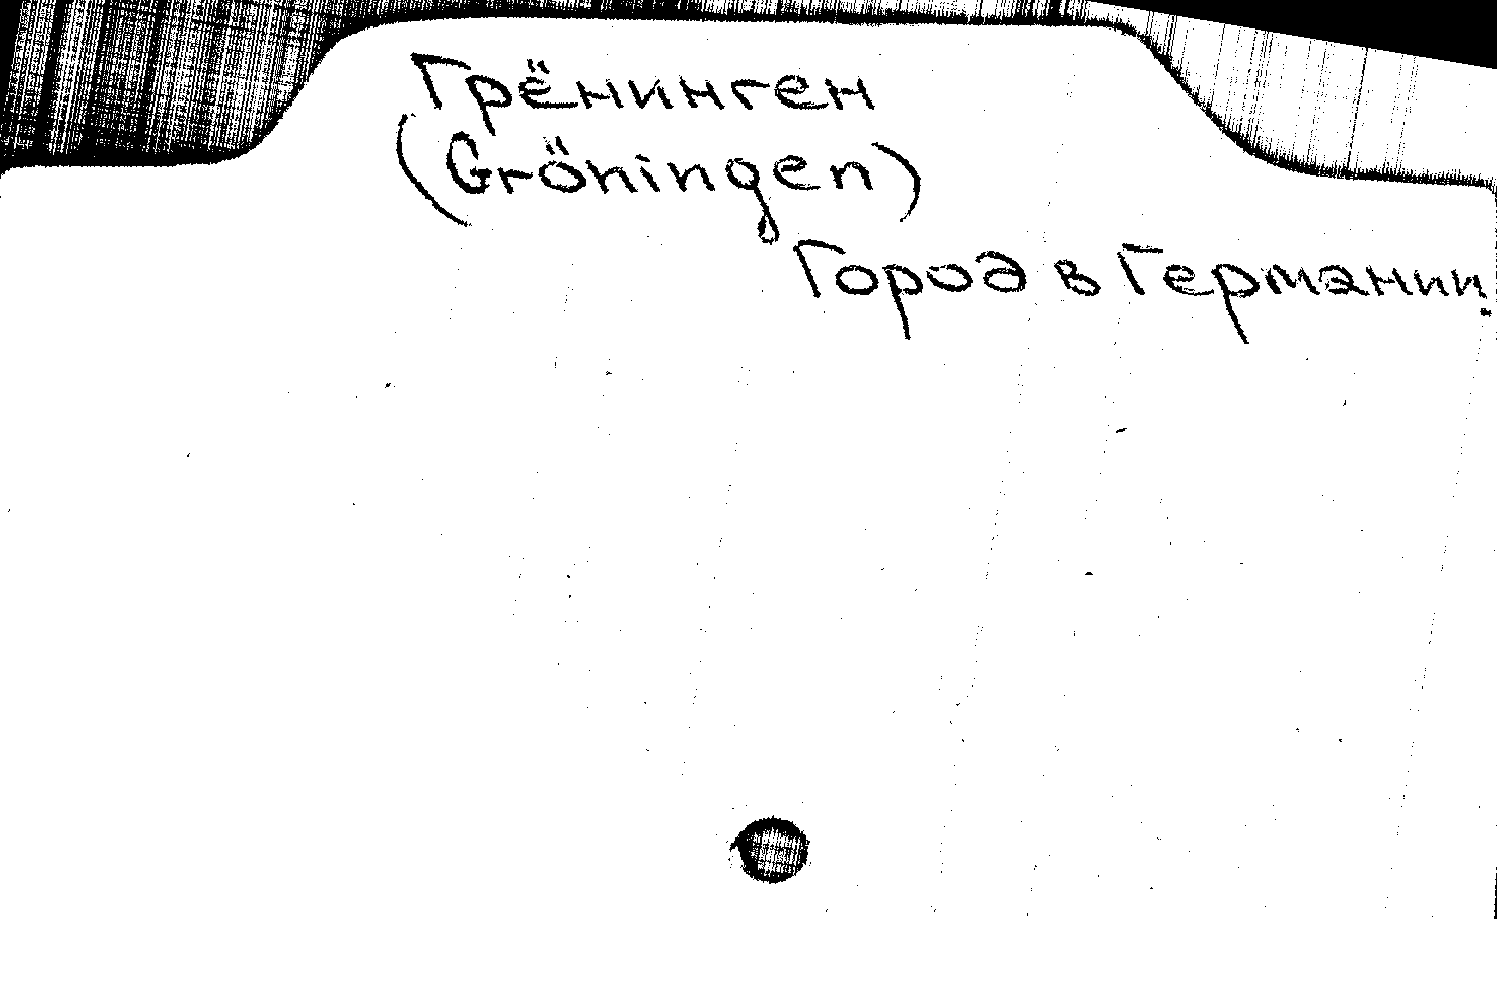 Грёнинген
(Gröningen)
Город в Германии.